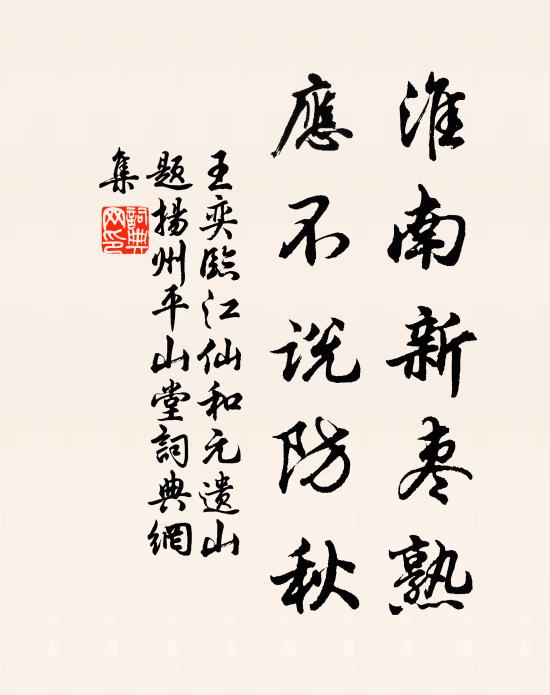 淮南新枣熟
應不説防秋
王奕臨江仙和元遺山
題揚州平山堂詞典網
集
詞典網印